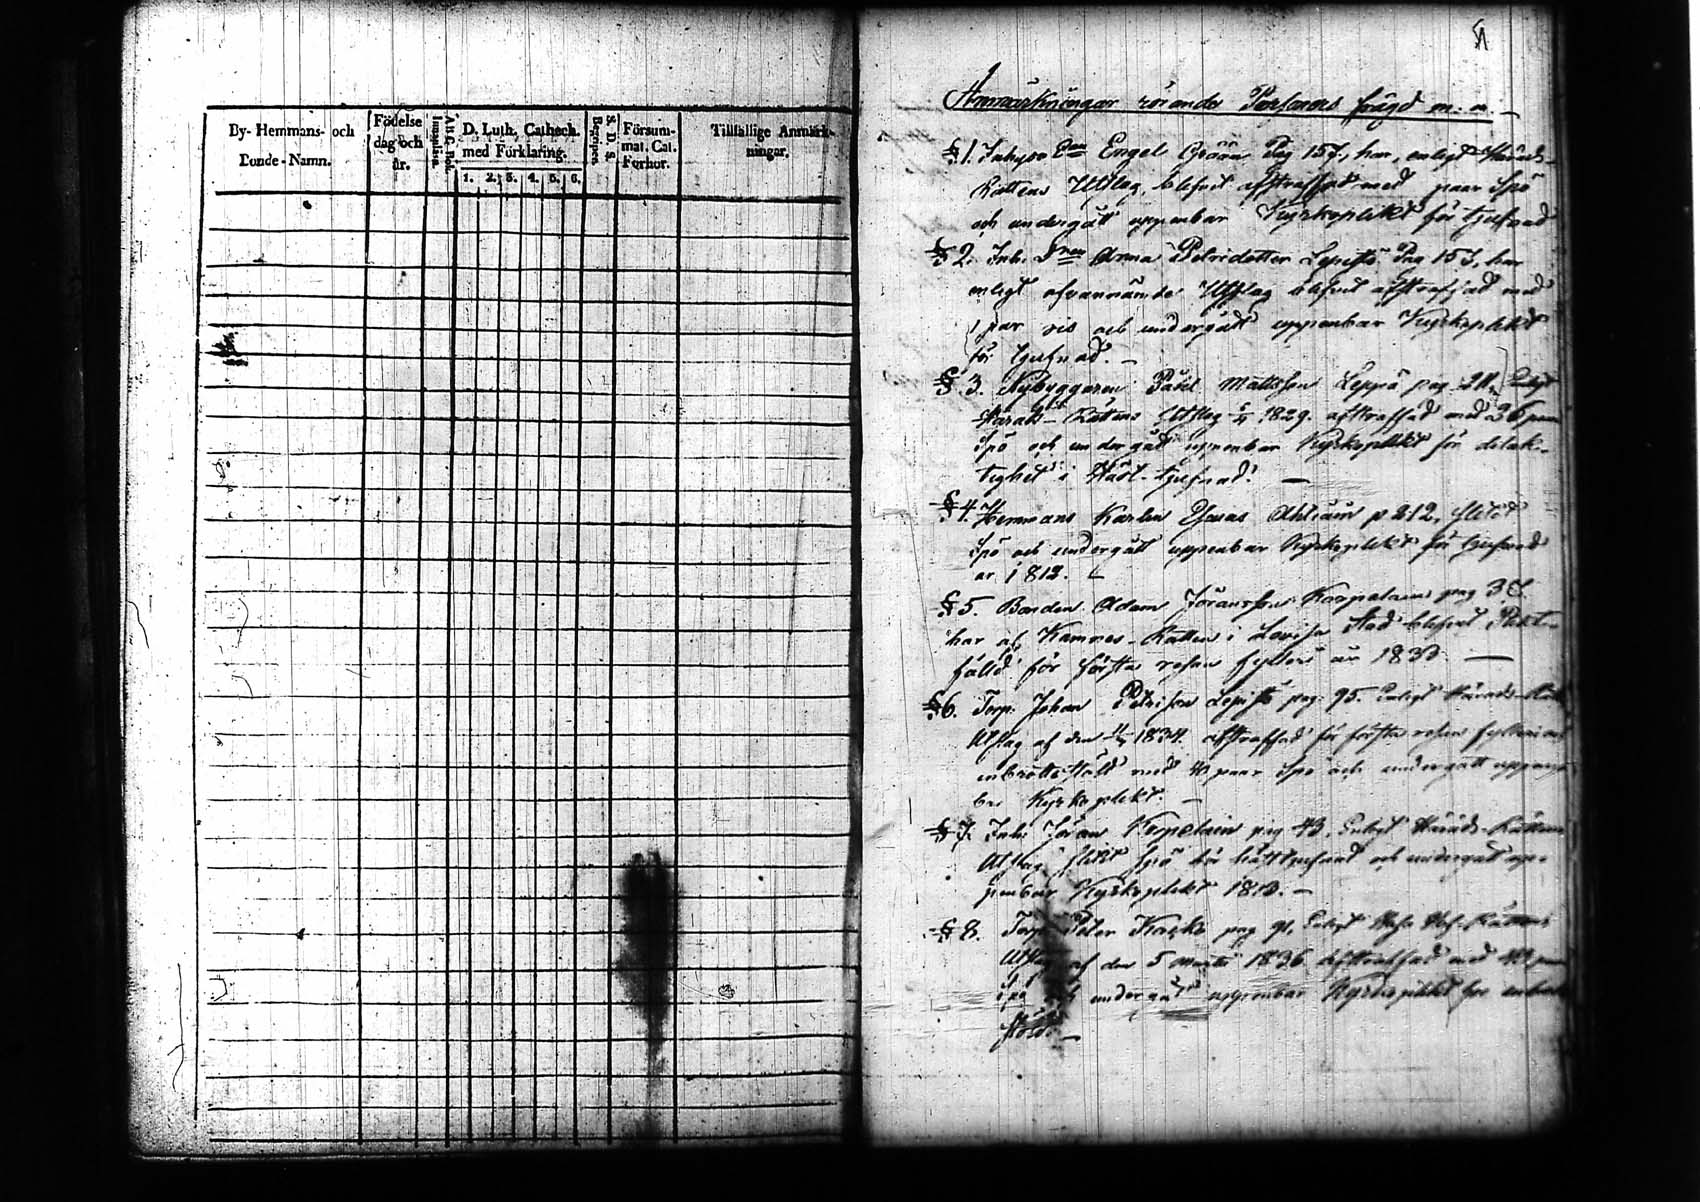 By- Hemmans- och
Bonde-Namn.
Födelse
dag och
år.
A B C Bok.
Innanläsn.
D. Luth. Cathech.
med Förklaring.
1. 2. 3. 4. 5. 6.
S. D. S.
Begrepet.
Försum-
mat. Cat.
Förhör.
Tillfällige Anmärk-
ningar.
Anmärkningar rörande Personers frägd m: m
§ 1. Engel Pag 157, har, enligt Härads-
Rättens Utslag, blifvit afstraffad med paar Spö
och undergått uppenbar Kyrkoplikt för tjufnad
§ 2. Inh. Anna Petridotter Lepistö Pag 157, har
enligt ofvannämnde Utslag blifvit afstraffad med
par ris och undergått uppenbar Kyrkoplikt
för tjufnad. –
§. 3. Nybyggaren Påhl Mattsson Leppä pag. 211, Enligt
Härads-Rättens Utslag 1829. afstraffad med 26 paar
Spö och undergått uppenbar Kyrkoplikt för delak-
tighet i Häst-tjufnad. –
§ 4. Hemmans Karlen Esaias p 212, slitit
Spö och undergått uppenbar Kyrkoplikt för tjufnad
år 1812.
§ 5. Bonden Adam Göransson Karpelain pag 37.
har af Kamners-Rätten i Lovisa Stad blifvit Plikt-
fälld för första resan fylleri år 183
§ 6. Torp. Johan Petrisson Lepistö pag: 95. Enligt Härads-Rätt
Utslag af den 1834. afstraffad för första resan fylleri och
inbrottsstöld med 40 paar Spö och undergått uppen-
bar Kyrkoplikt. –
§ 7. Inh: Göran Karpelain pag 43. Enligt Härads-Rättens
Utslag slitit Spö för tjufnad och undergått up-
penbar Kyrkoplikt 181 –
§ 8. Torp. Peter pag 91, Enligt Hof-Rättens
Utslag af den 5 Martii 1836 afstraffad med 40 paar
Spö och undergått uppenbar Kyrkoplikt för inbrott
stöld. –